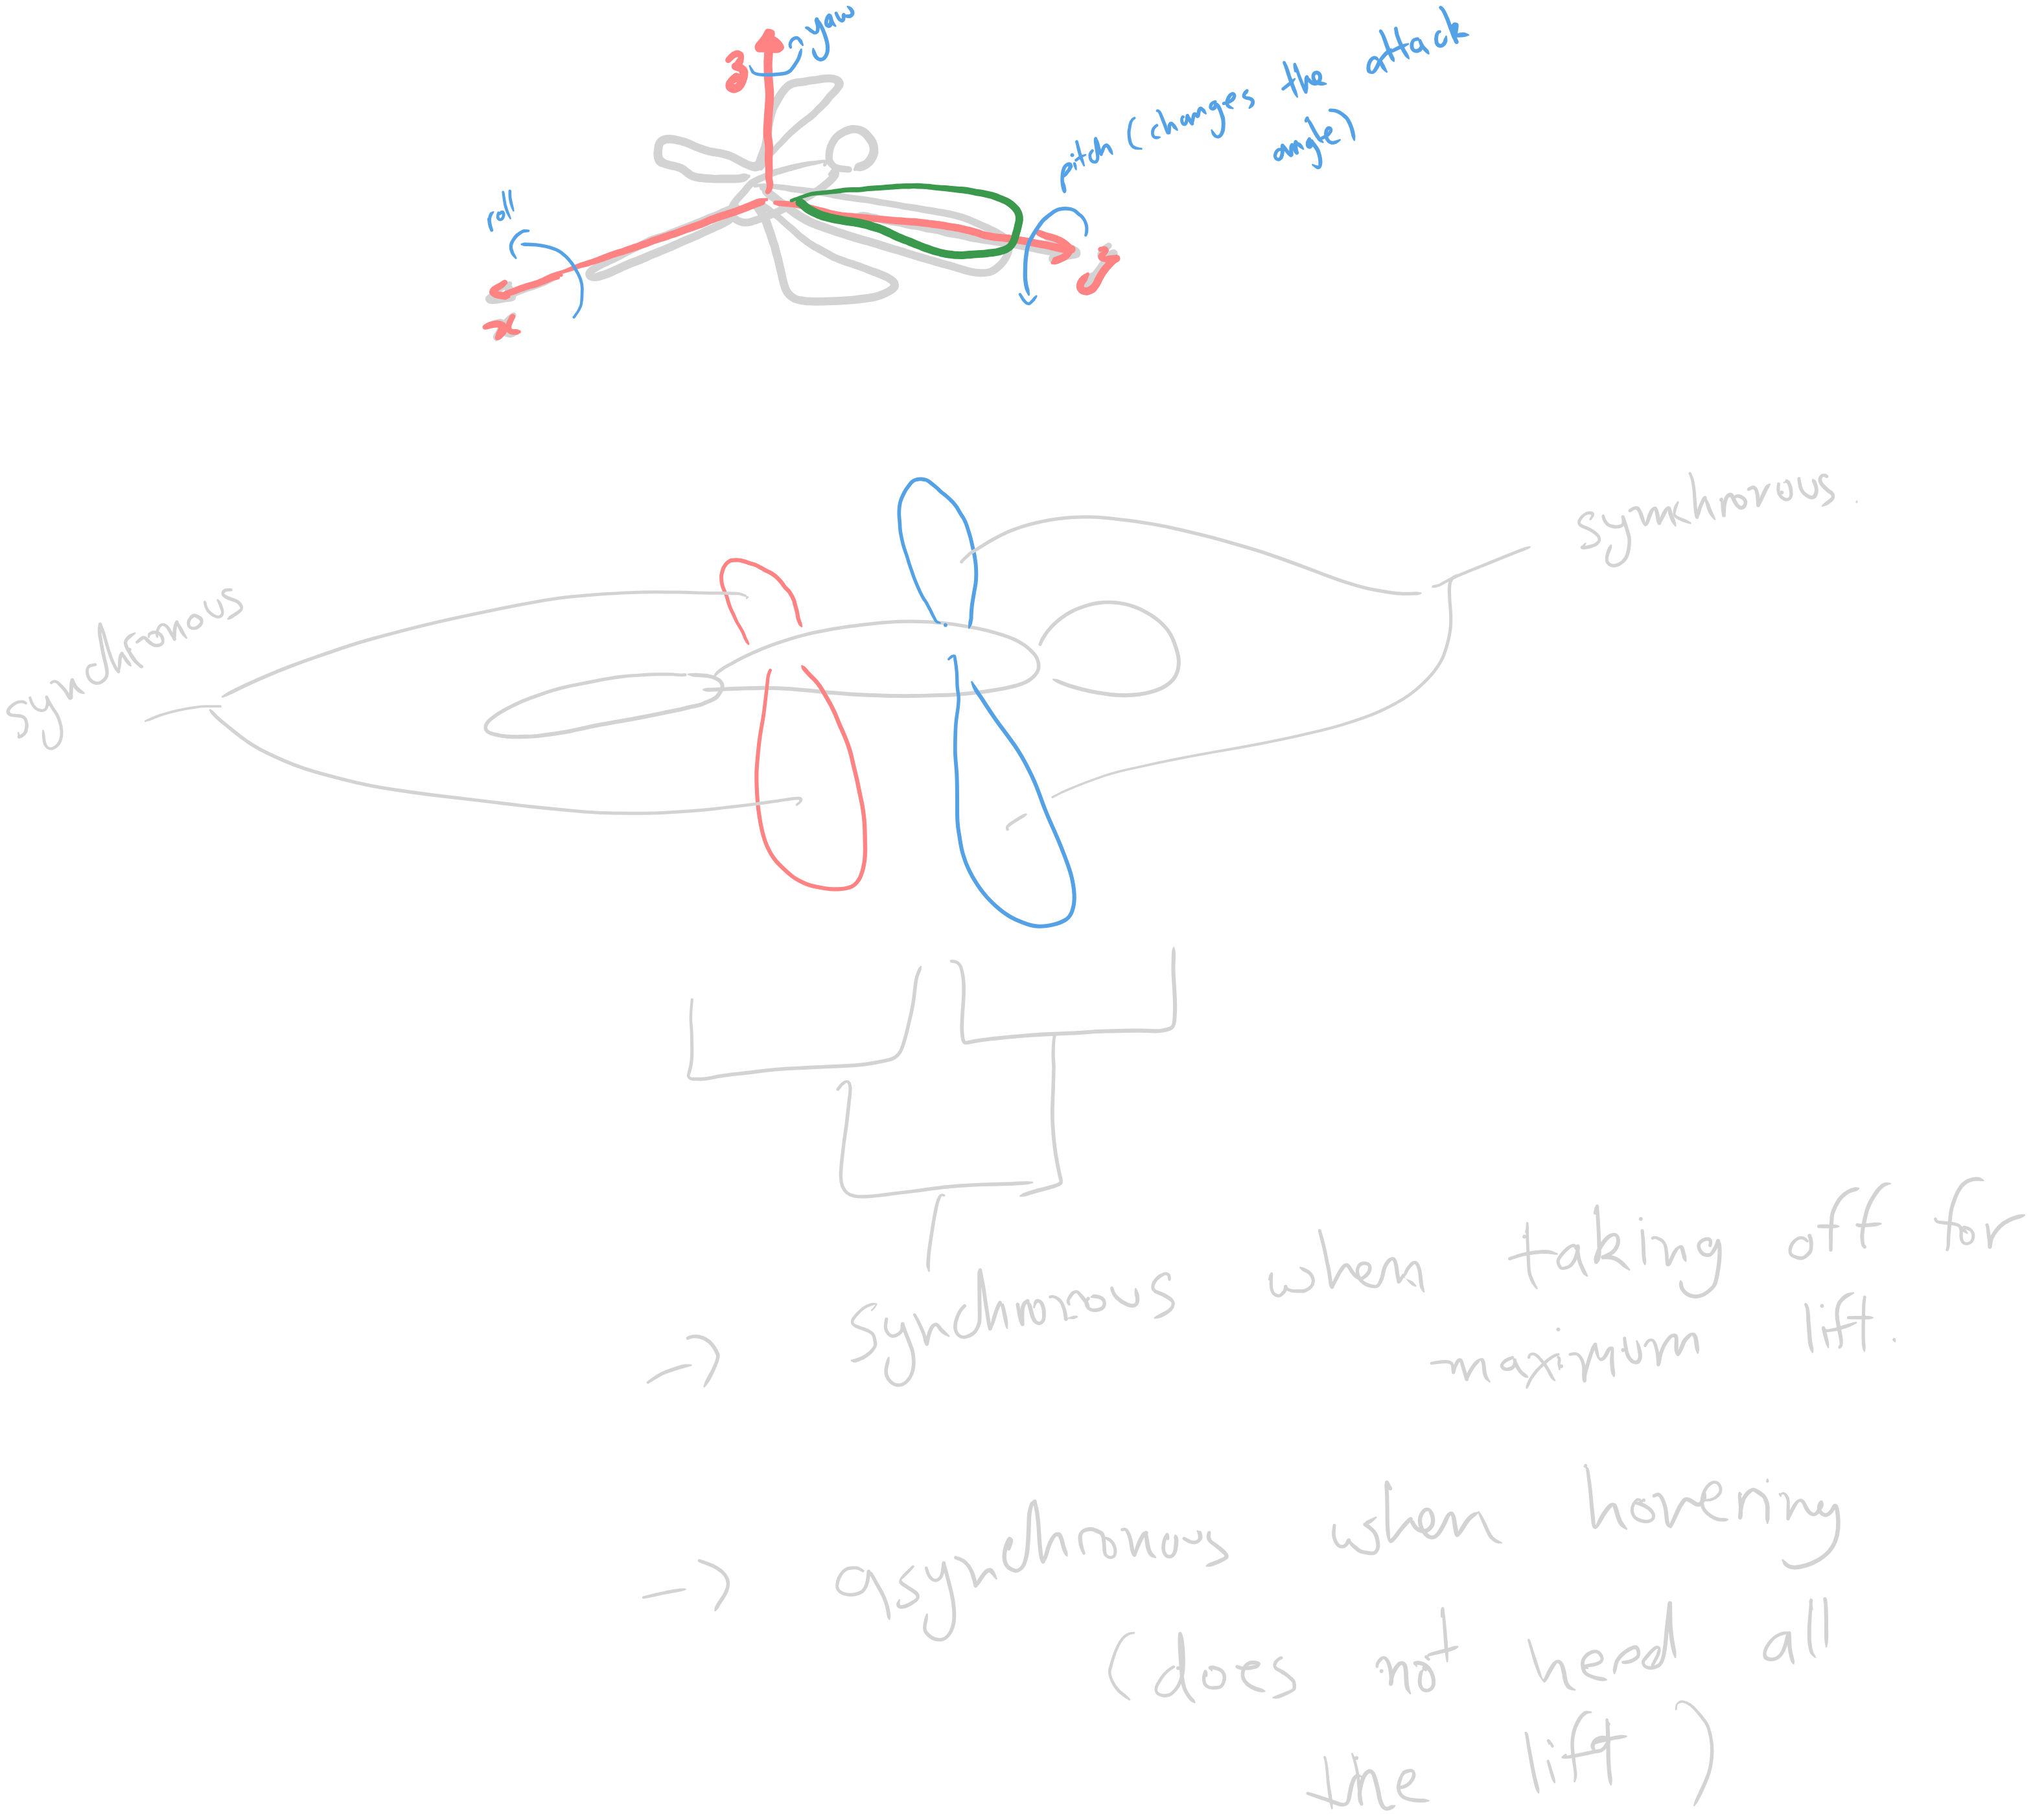 z
yaw
pitch (changes the attack
angle)
roll
y
x
synchronous.
synchronous
-> synchronous when taking off for
maximum lift.
-> asynchronous when hovering
(does not need all
the lift)